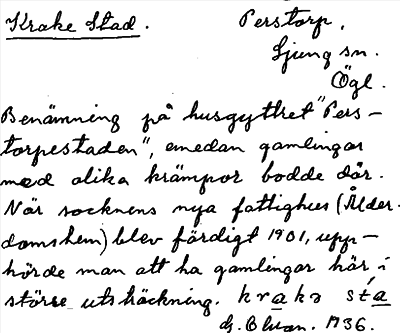 Krake Stad.
Perstorp.
Ljung sn.
Ögl.
Benämning på husgyttret "Pers-
torpestaden", medan gamlingar
med olika krämpor bodde där.
När socknens nya fattighus (Ålder-
domshem) blev färdigt 1901, upp-
hörde man att ha gamlingar här i
större utsträckning. kraka sta
1936.